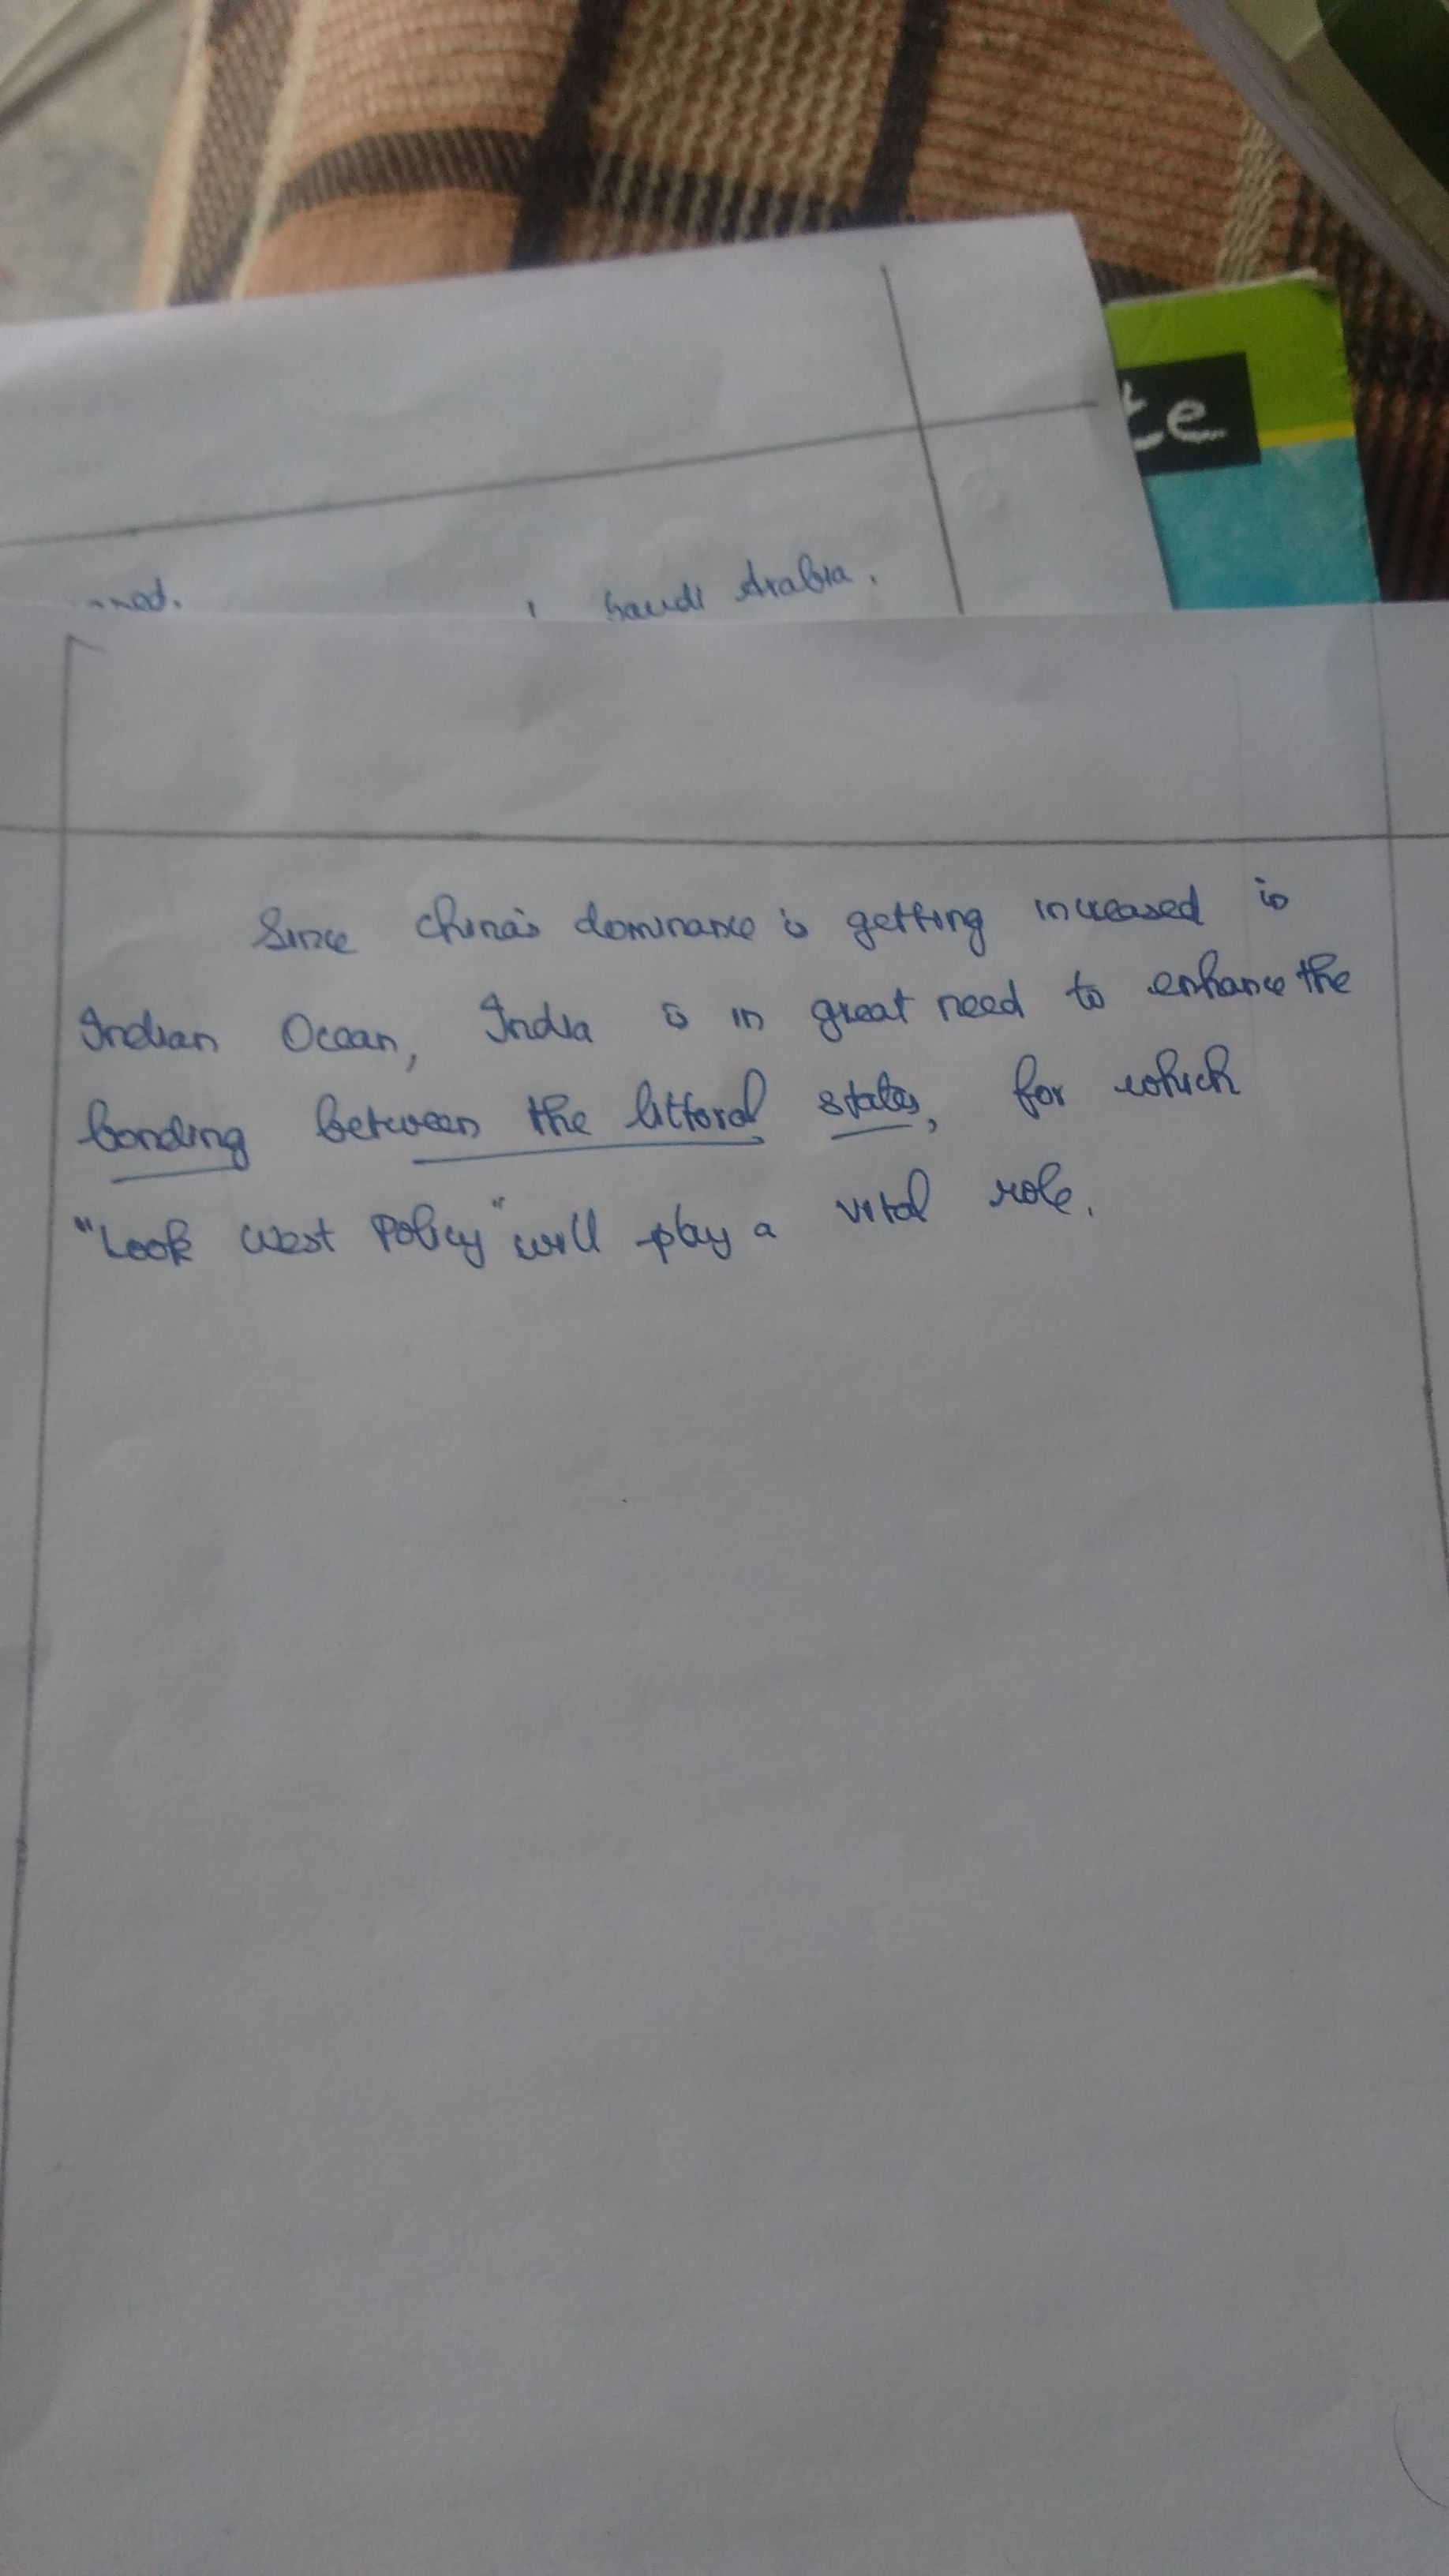 te
Saudi Arabia.
Since China's dominance is getting increased in
Indian Ocean, India is in great need to enhance the
bonding between the littoral states, for which
"Look West Policy" will play a vital role.